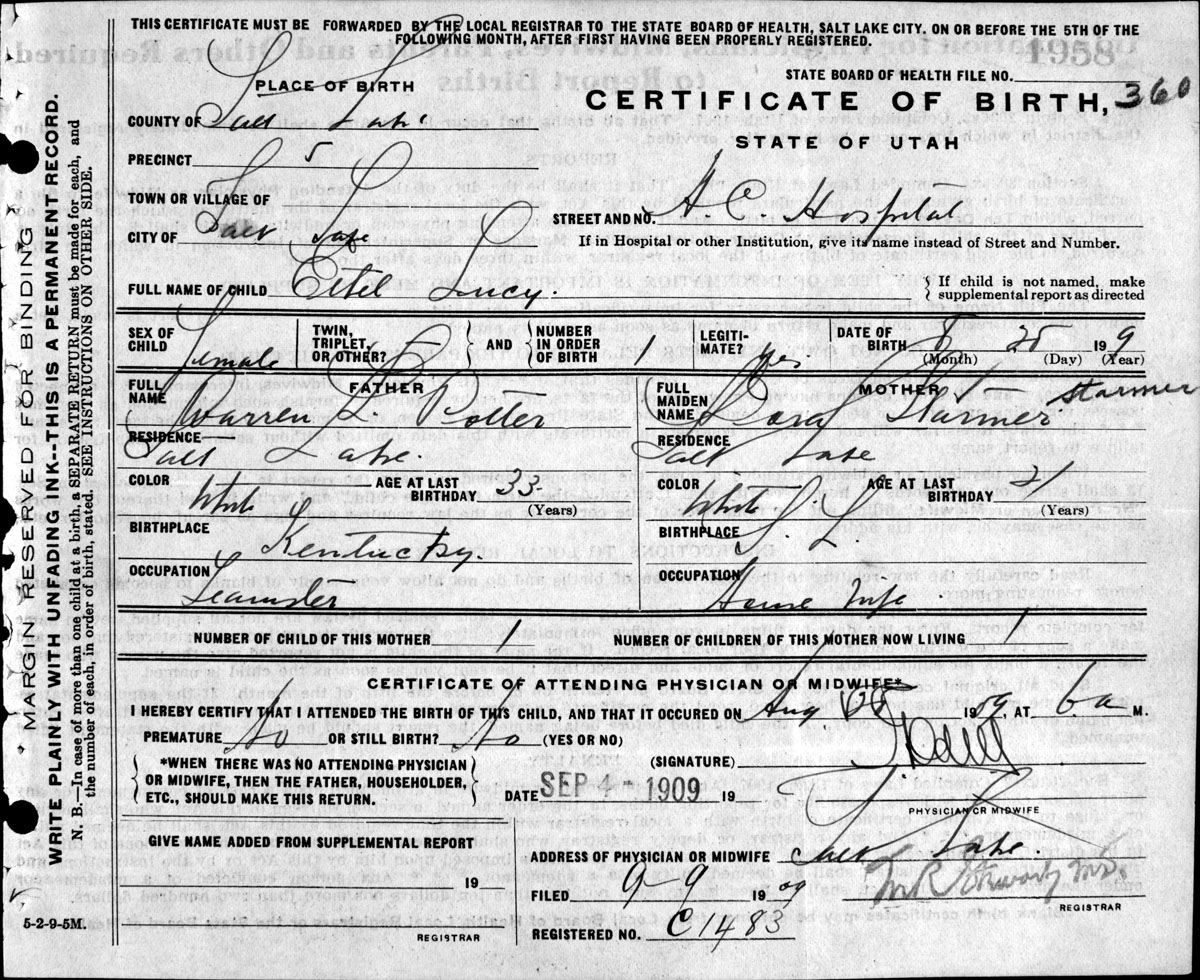 THIS CERTIFICATE MUST BE FORWARDED BY THE LOCAL REGISTRAR TO THE STATE BOARD OF HEALTH, SALT LAKE CITY, ON OR BEFORE THE 5TH OF THE
FOLLOWING MONTH, AFTER FIRST HAVING BEEN PROPERLY REGISTERED.
STATE BOARD OF HEALTH FILE NO.
PLACE OF BIRTH
CERTIFICATE OF BIRTH, 360
COUNTY OF Salt Lake
STATE OF UTAH
PRECINCT 5
TOWN OR VILLAGE OF
STREET AND NO. H. C. Hospital
CITY OF Salt Lake
If in Hospital or other Institution, give its name instead of Street and Number.
FULL NAME OF CHILD Lucy.
If child is not named, make
supplemental report as directed
SEX OF CHILD Female
TWIN, TRIPLET, OR OTHER?
AND
NUMBER IN ORDER OF BIRTH 1
LEGITI- MATE? yes
DATE OF BIRTH 8 25 1909
(Month) (Day) (Year)
FATHER
FULL NAME Warren L.
MOTHER
FULL MAIDEN NAME Starmer Starmer
RESIDENCE Salt Lake.
RESIDENCE Salt Lake
COLOR White AGE AT LAST BIRTHDAY 33 (Years)
COLOR White AGE AT LAST BIRTHDAY 21 (Years)
BIRTHPLACE Kentucky.
BIRTHPLACE S. L.
OCCUPATION Teamster
OCCUPATION House Wife
NUMBER OF CHILD OF THIS MOTHER 1 NUMBER OF CHILDREN OF THIS MOTHER NOW LIVING 1
CERTIFICATE OF ATTENDING PHYSICIAN OR MIDWIFE*
I HEREBY CERTIFY THAT I ATTENDED THE BIRTH OF THIS CHILD, AND THAT IT OCCURED ON Aug. 1909, AT 6 a M.
PREMATURE No OR STILL BIRTH? No (YES OR NO)
(SIGNATURE)
*WHEN THERE WAS NO ATTENDING PHYSICIAN
OR MIDWIFE, THEN THE FATHER, HOUSEHOLDER,
ETC., SHOULD MAKE THIS RETURN.
DATE SEP 1909 19
PHYSICIAN OR MIDWIFE
GIVE NAME ADDED FROM SUPPLEMENTAL REPORT
19
REGISTRAR
ADDRESS OF PHYSICIAN OR MIDWIFE Salt Lake
FILED 9-9 1909
REGISTRAR
REGISTERED NO. C1483
MARGIN RESERVED FOR BINDING
WRITE PLAINLY WITH UNFADING INK--THIS IS A PERMANENT RECORD.
N. B.—In case of more than one child at a birth, a SEPARATE RETURN must be made for each, and
the number of each, in order of birth, stated. SEE INSTRUCTIONS ON OTHER SIDE.
5-2-9-5M.